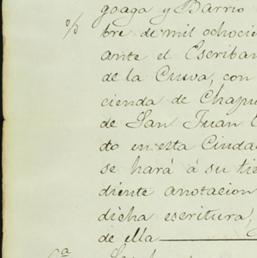 goaga y Barrio
% bre de mil ochocie
ante el Escriban
de la Cueva, con
cienda de Chapu
de San Juan
do en esta Ciudad
se hará á su tie
diente anotacion
dicha escritura,
de ella